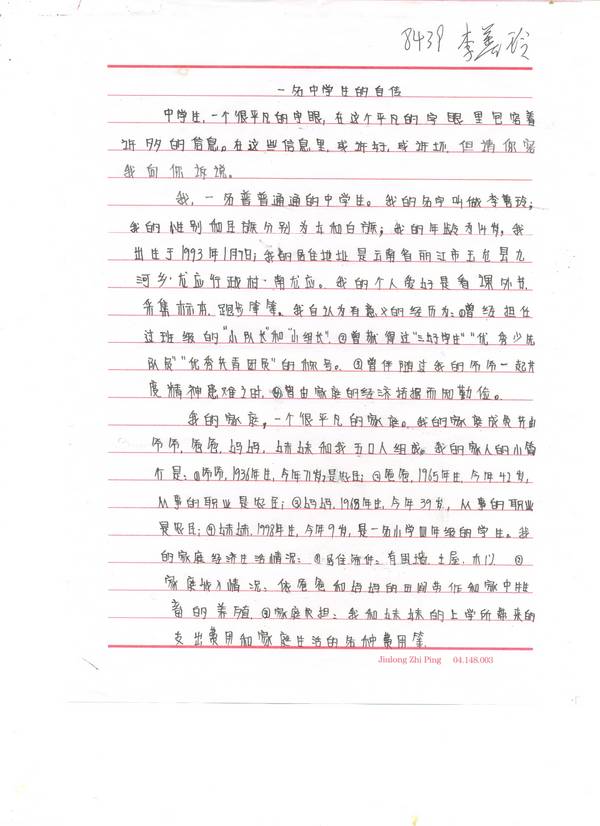 8439 李善玲
一名中学生的自传
中学生,一个很平凡的字眼,在这个平凡的字眼里包容着
许多的信息。在这些信息里,或许好,或许坏,但请你容
我向你诉说。
我,一名普普通通的中学生。我的名字叫做李善玲;
我的性别和民族分别为女和白族;我的年龄为14岁,我
出生于1993年1月7日;我的居住地址是云南省丽江市玉龙县九
河乡·龙应行政村·南龙应。我的个人爱好是看课外书,
采集标本,跑步等等。我自认为有意义的经历为:①曾经担任
过班级的"小队长"和"小组长",②曾献得过"三好学生""优秀少先
队员""优秀共青团员"的称号。③曾伴随过我的奶奶一起共
度精神患难之时,④曾由家庭的经济拮据而知勤俭。
我的家庭,一个很平凡的家庭。我的家庭成员共由
奶奶,爸爸,妈妈,妹妹和我五口人组成。我的家人的小简
介是:①奶奶,1936年生,今年71岁,是农民;②爸爸,1965年生,今年42岁,
从事的职业是农民;③妈妈,1968年生,今年39岁,从事的职业
是农民;④妹妹,1998年生,今年9岁,是一名小学三年级的学生。我
的家庭经济生活情况:①居住:有围墙,土屋,②
家庭收入情况:依爸爸和妈妈的田间劳作和家中牲
畜的养殖,③家庭负担:我和妹妹的上学所带来的
支出费用和家庭生活的各种费用等.
Jiulong Zhi Ping 04.148.003